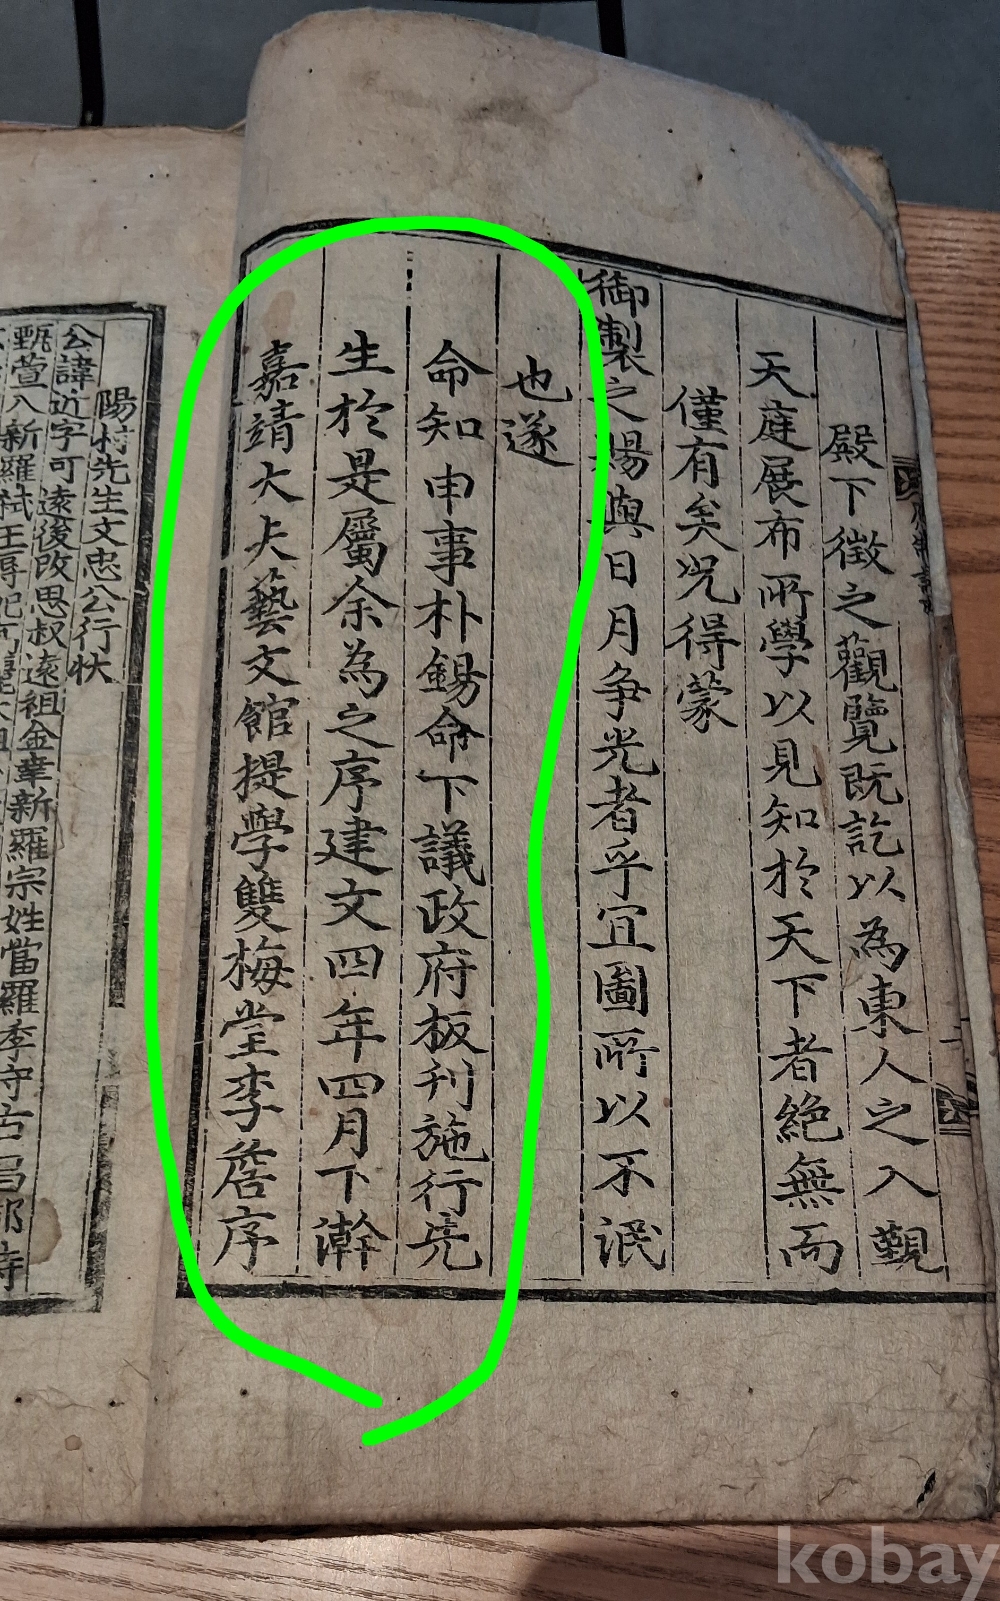 殿下徵之觀覽既訖以為東人之入覲
天庭展布所學以見知於天下者絶無而
僅有矣况得蒙
御製之賜與日月争光者乎宜圖所以不泯
也遂
命知申事朴錫命下議政府板刊施行亮
生於是屬余為之序建文四年四月下澣
嘉靖大夫藝文館提學雙梅堂李詹序
陽村先生文忠公行狀
公諱近字可遠後改思叔遠祖金幸新羅宗姓當羅季守古昌郡時
甄萱入新羅弑王辱妃
kobay